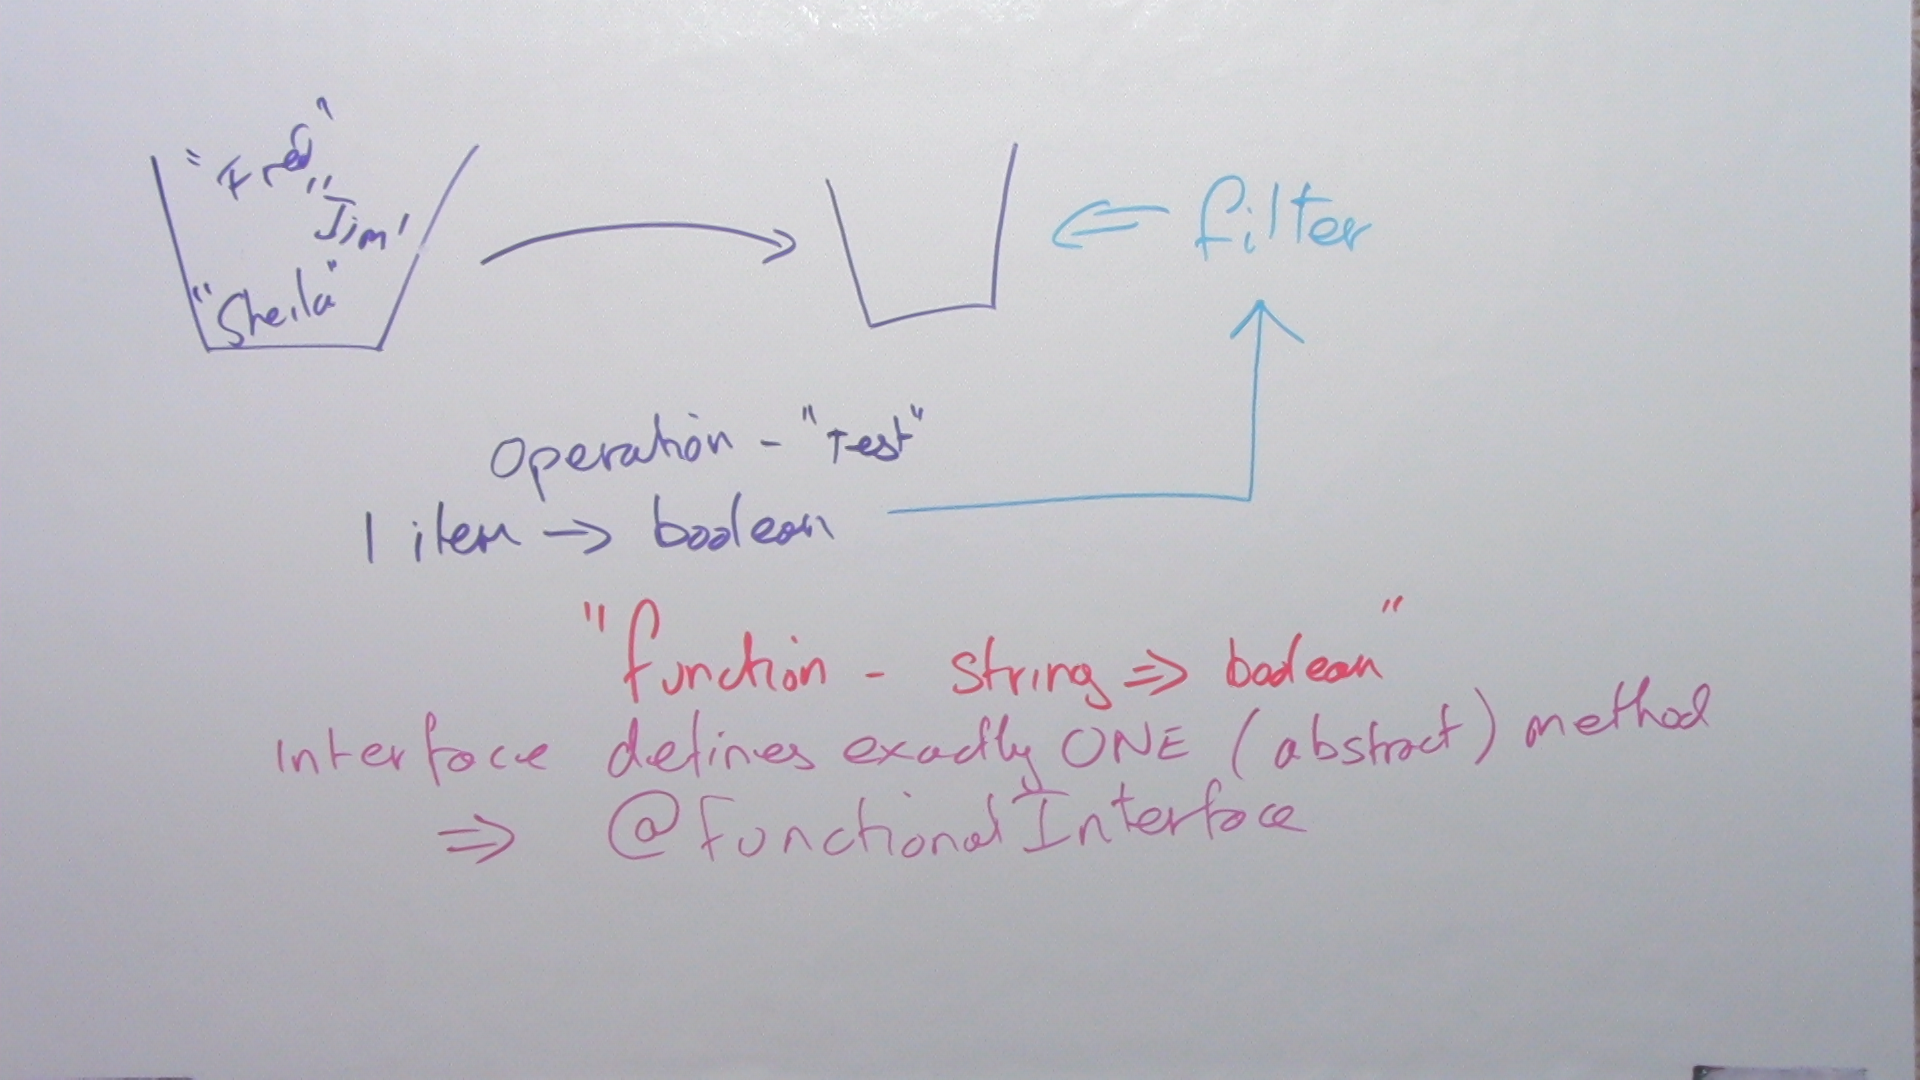 "Fred"
"Jim'
"Sheila"
filter
Operation - "Test"
1 item → boolean
"function - String ⇒ boolean"
Interface defines exactly ONE (abstract) method
⇒ @FunctionalInterface